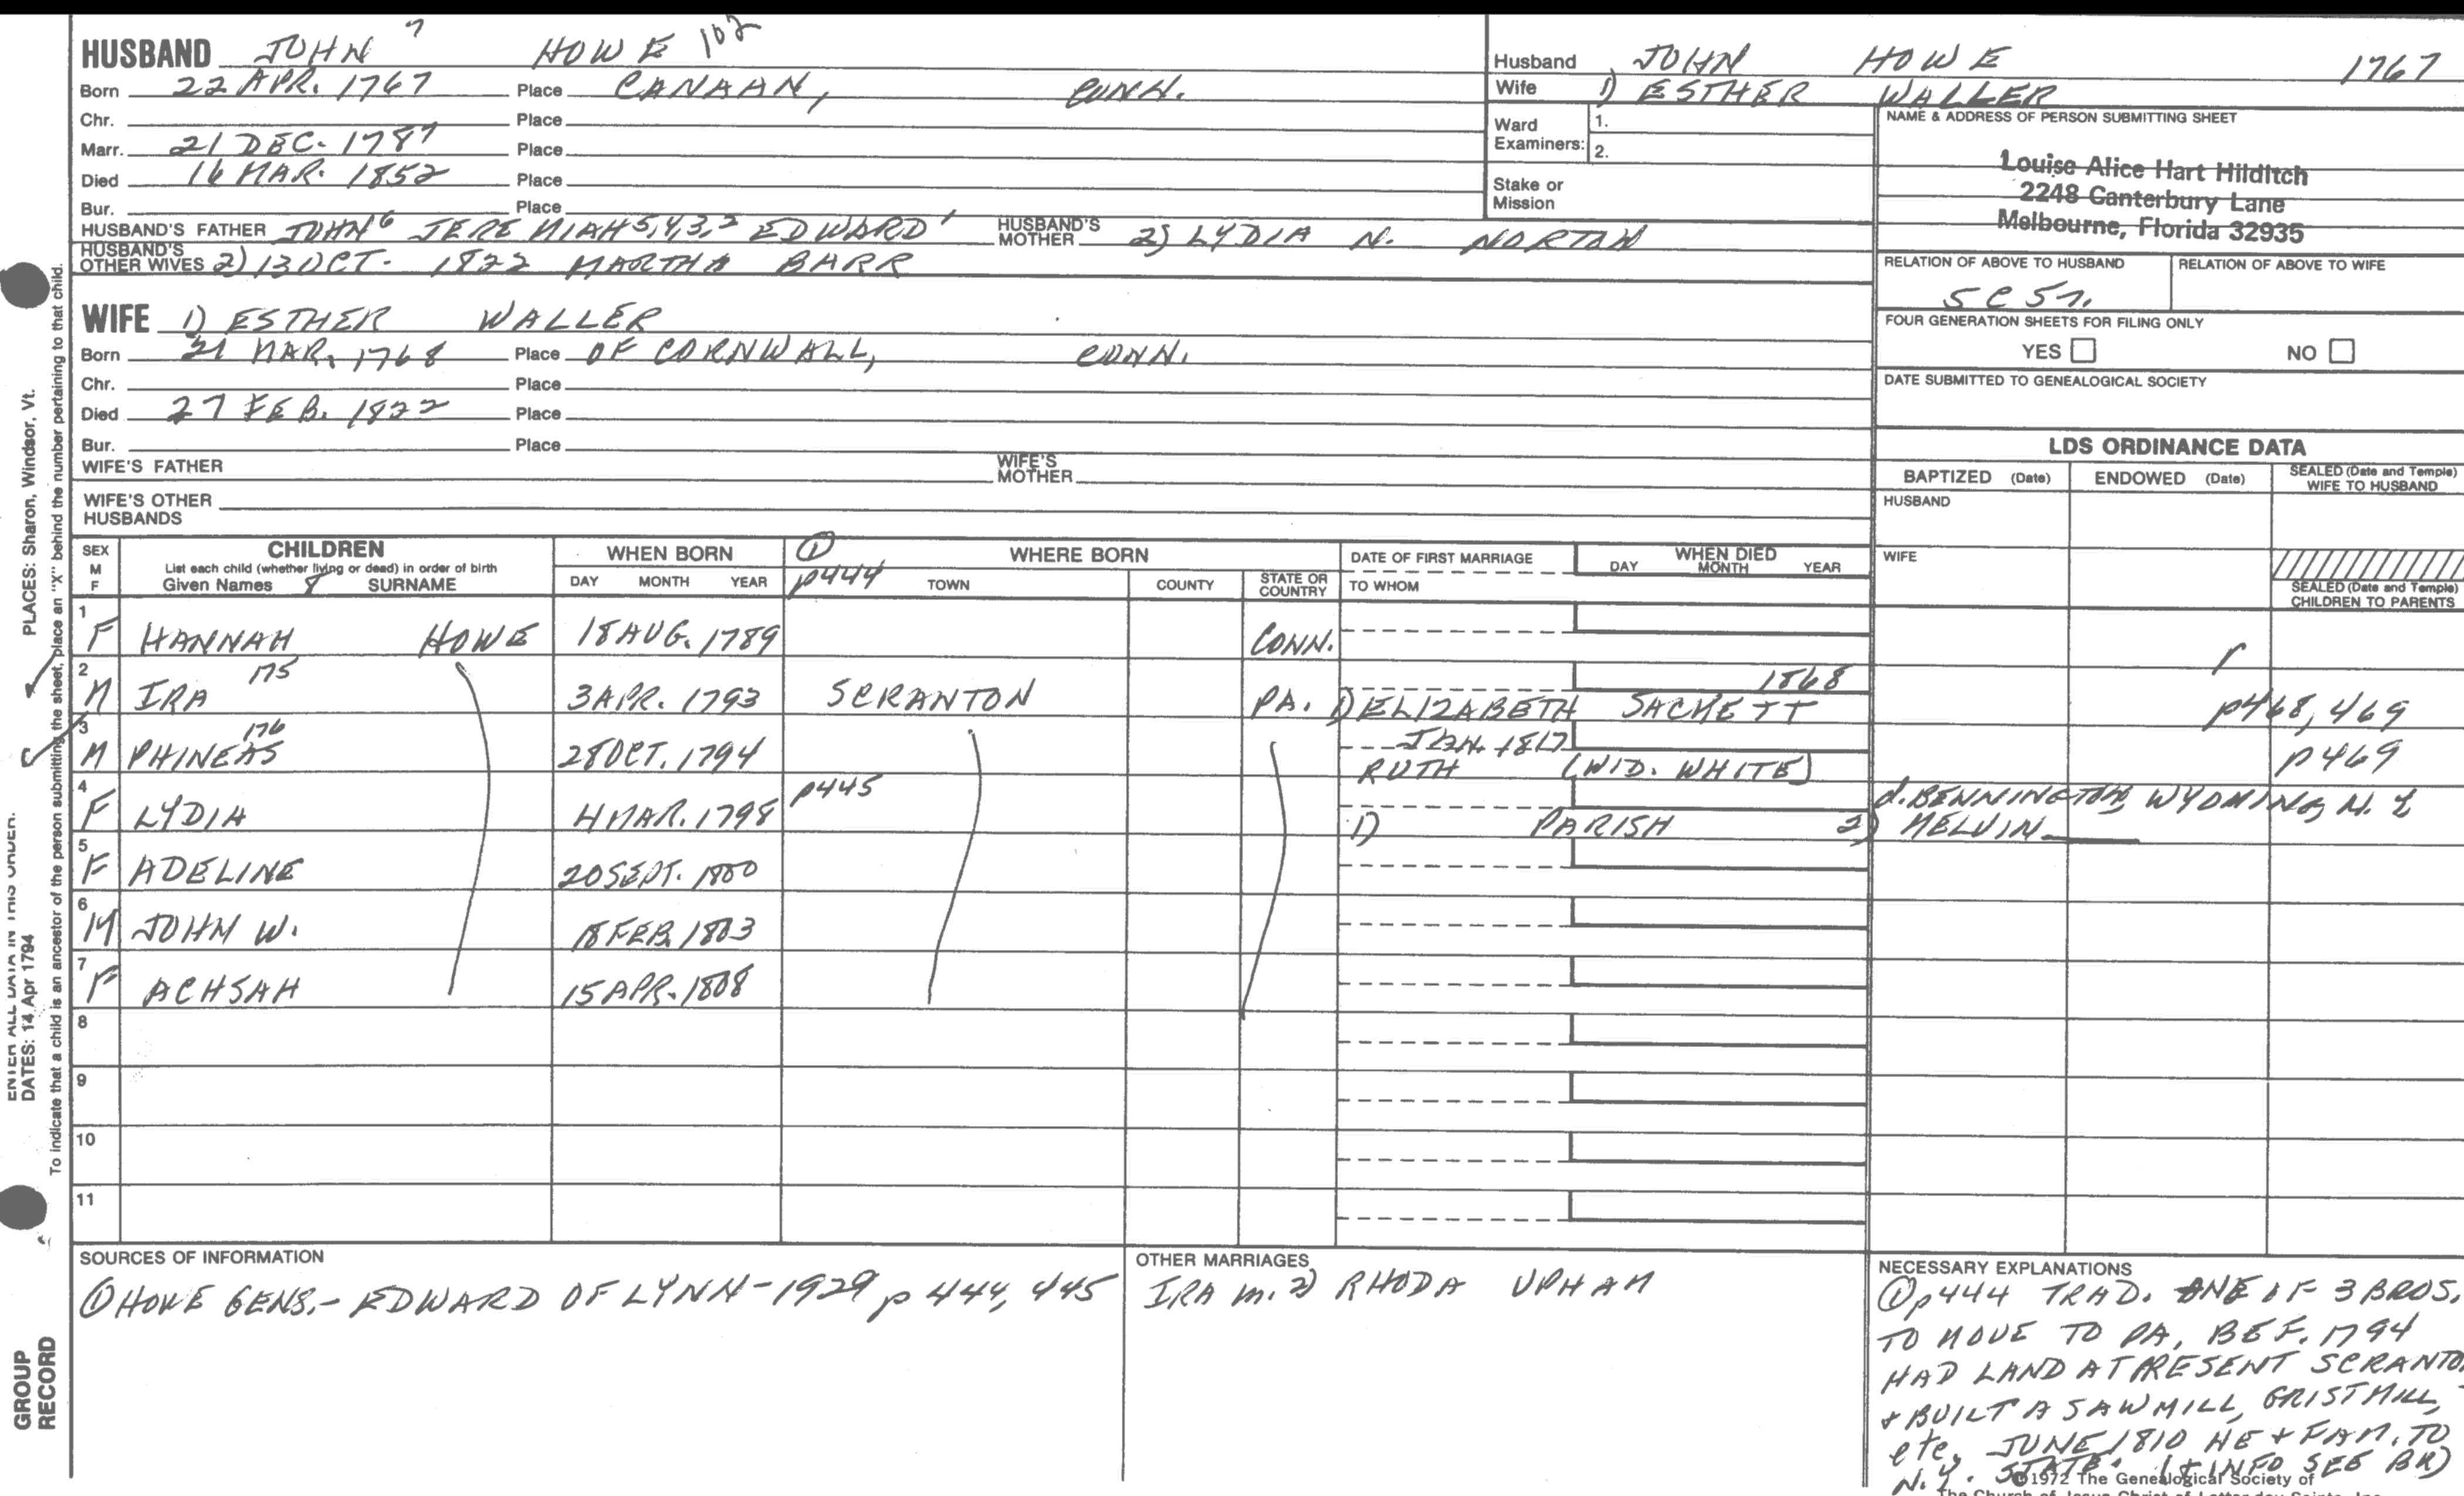 HUSBAND JOHN 7 HOWE 102
Born 22 APR. 1767 Place CANAAN, CONN.
Chr. Place
Marr. 21 DEC. 1787 Place
Died 16 MAR. 1852 Place
Bur. Place
HUSBAND'S FATHER JOHN 6 JEREMIAH 5,4,3,2 EDWARD 1 HUSBAND'S MOTHER 2) LYDIA N. NORTON
HUSBAND'S OTHER WIVES 2) 13 OCT. 1822 MARTHA BARR
WIFE 1) ESTHER WALLER
Born 21 MAR. 1768 Place OF CORNWALL, CONN.
Chr. Place
Died 27 FEB. 1822 Place
Bur. Place
WIFE'S FATHER WIFE'S MOTHER
WIFE'S OTHER HUSBANDS
Husband JOHN HOWE 1767
Wife 1) ESTHER WALLER
Ward Examiners: 1.
2.
Stake or Mission
NAME & ADDRESS OF PERSON SUBMITTING SHEET
Louise Alice Hart Hilditch
2248 Canterbury Lane
Melbourne, Florida 32935
RELATION OF ABOVE TO HUSBAND RELATION OF ABOVE TO WIFE
5C 5r.
FOUR GENERATION SHEETS FOR FILING ONLY
YES NO
DATE SUBMITTED TO GENEALOGICAL SOCIETY
LDS ORDINANCE DATA
BAPTIZED (Date) ENDOWED (Date) SEALED (Date and Temple) WIFE TO HUSBAND
HUSBAND
WIFE
SEALED (Date and Temple) CHILDREN TO PARENTS
SEX M F CHILDREN WHEN BORN ① WHERE BORN DATE OF FIRST MARRIAGE WHEN DIED
List each child (whether living or dead) in order of birth DAY MONTH YEAR p444 TOWN COUNTY STATE OR COUNTRY TO WHOM DAY MONTH YEAR
Given Names 8 SURNAME
1 F HANNAH HOWE 18 AUG. 1789 CONN.
2 M IRA 175 3 APR. 1793 SCRANTON PA. 1) ELIZABETH SACKETT 1868 p468, 469
3 M PHINEAS 176 28 OCT. 1794 JAN. 1817 RUTH (WID. WHITE) p469
4 F LYDIA 4 MAR. 1798 p445 1) PARISH 2) MELVIN d. BENNINGTON, WYOMING, N.Y.
5 F ADELINE 20 SEPT. 1800
6 M JOHN W. 18 FEB. 1803
7 F ACHSAH 15 APR. 1808
8
9
10
11
SOURCES OF INFORMATION
① HOWE GENS.- EDWARD OF LYNN-1929 p 444, 445
OTHER MARRIAGES
IRA m. 2) RHODA UPHAM
NECESSARY EXPLANATIONS
① p444 TRAD. ONE OF 3 BROS.
TO MOVE TO PA, BEF. 1794
HAD LAND AT PRESENT SCRANTON
+ BUILT A SAWMILL, GRISTMILL,
etc. JUNE 1810 HE + FAM. TO
N.Y. STATE. (+ INFO SEE BK)
©1972 The Genealogical Society of
The Church of Jesus Christ of Latter-day Saints, Inc.
PLACES: Sharon, Windsor, Vt.
ENTER ALL DATA IN THIS ORDER:
DATES: 14 Apr 1794
To indicate that a child is an ancestor of the person submitting the sheet, place an "X" behind the number pertaining to that child.
GROUP
RECORD